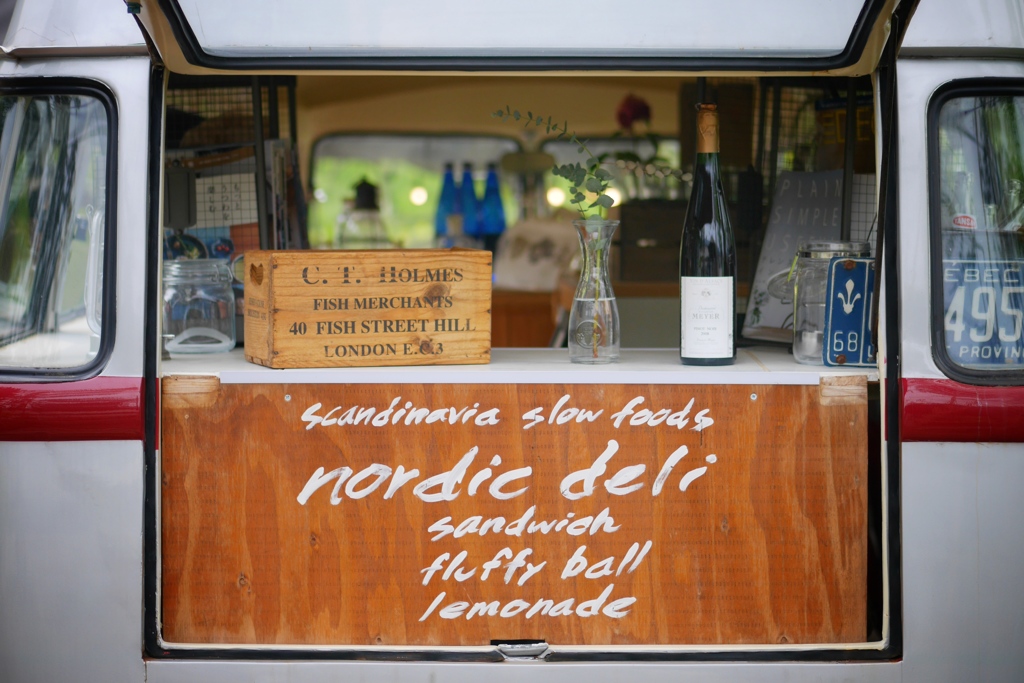 PLAIN
SIMPLE
C. T. HOLMES
FISH MERCHANTS
40 FISH STREET HILL
LONDON E.C.3
MEYER
68
495
PROVIN
scandinavia slow foods
nordic deli
sandwich
fluffy ball
lemonade